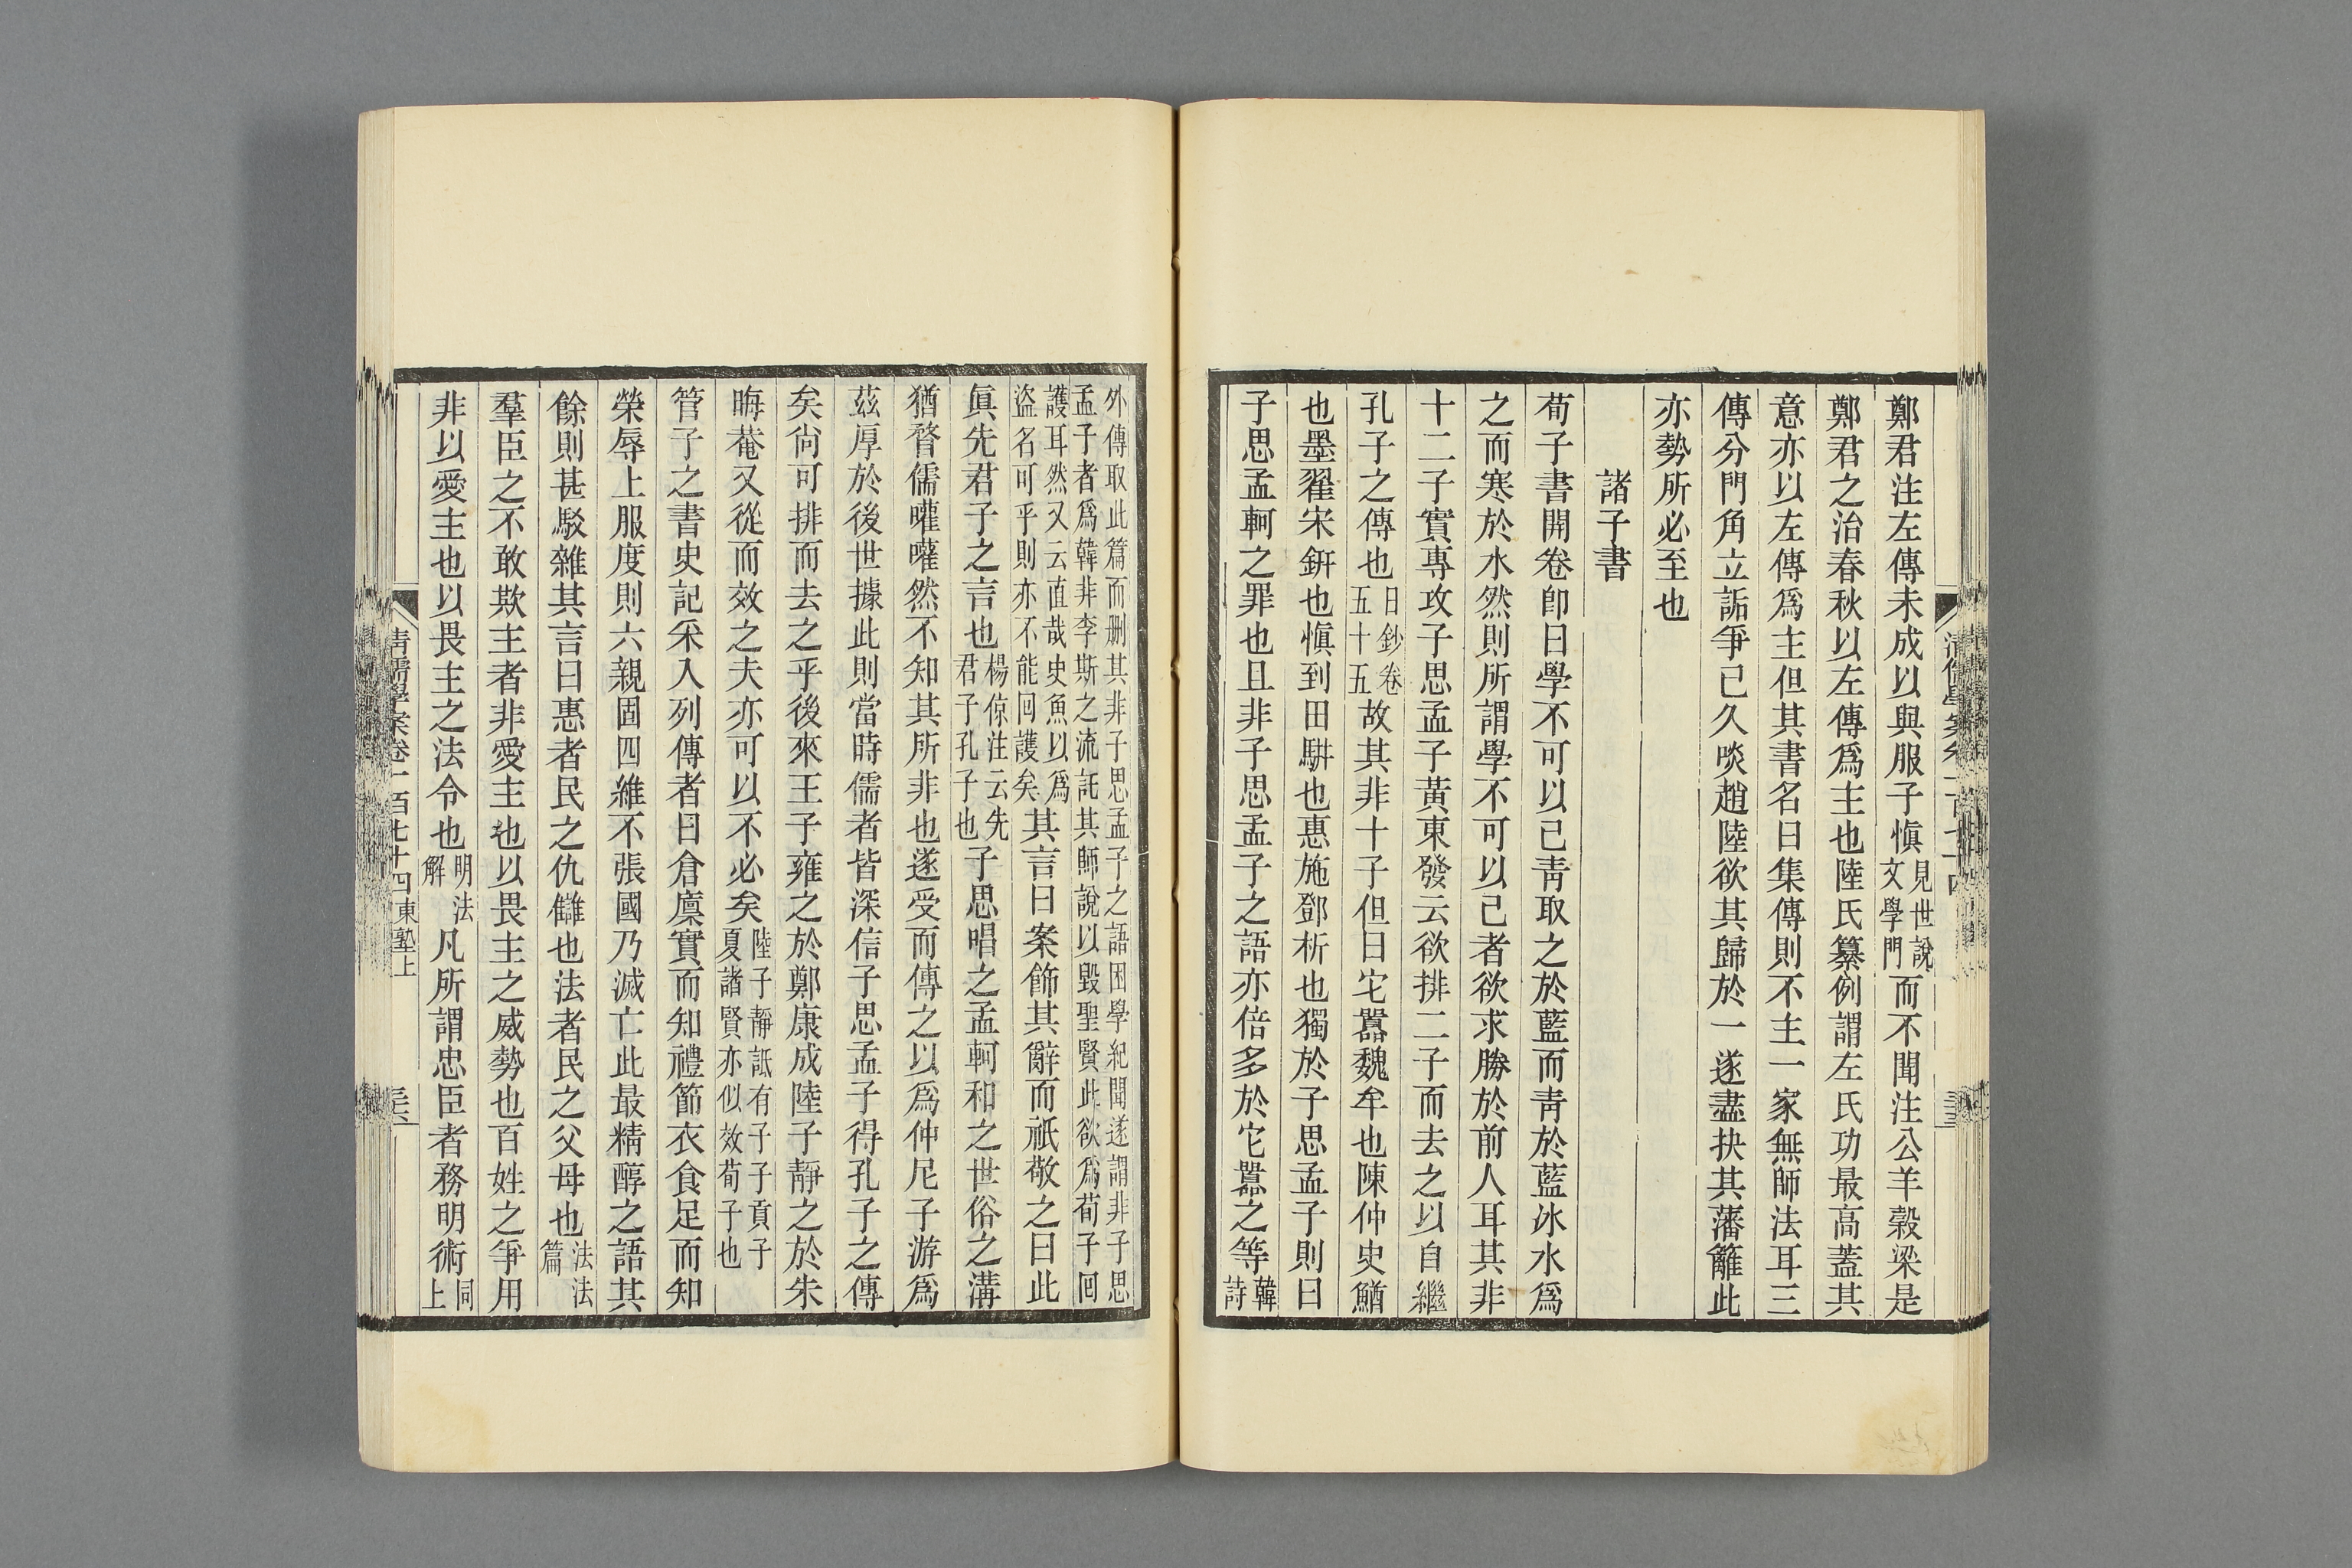 鄭君注左傳未成以與服子愼見世說文學門而不聞注公羊穀梁是
鄭君之治春秋以左傳爲主也陸氏纂例謂左氏功最高蓋其
意亦以左傳爲主但其書名曰集傳則不主一家無師法耳三
傳分門角立詬爭已久啖趙陸欲其歸於一遂盡抉其藩籬此
亦勢所必至也
諸子書
荀子書開卷卽曰學不可以已靑取之於藍而靑於藍冰水爲
之而寒於水然則所謂學不可以已者欲求勝於前人耳其非
十二子實專攻子思孟子黃東發云欲排二子而去之以自繼
孔子之傳也日鈔卷五十五故其非十子但曰它嚚魏牟也陳仲史鰌
也墨翟宋鈃也愼到田騈也惠施鄧析也獨於子思孟子則曰
子思孟軻之罪也且非子思孟子之語亦倍多於它嚚之等韓詩
外傳取此篇而删其非子思孟子之語困學紀聞遂謂非子思
孟子者爲韓非李斯之流託其師說以毀聖賢此欲爲荀子囘
護耳然又云直哉史魚以爲盜名可乎則亦不能囘護矣其言曰案飾其辭而祇敬之曰此
眞先君子之言也楊倞注云先君子孔子也子思唱之孟軻和之世俗之溝
猶瞀儒嚾嚾然不知其所非也遂受而傳之以爲仲尼子游爲
茲厚於後世據此則當時儒者皆深信子思孟子得孔子之傳
矣尙可排而去之乎後來王子雍之於鄭康成陸子靜之於朱
晦菴又從而效之夫亦可以不必矣陸子靜詆有子子貢子夏諸賢亦似效荀子也
管子之書史記采入列傳者曰倉廩實而知禮節衣食足而知
榮辱上服度則六親固四維不張國乃滅亡此最精醇之語其
餘則甚駁雜其言曰惠者民之仇讎也法者民之父母也法法篇
羣臣之不敢欺主者非愛主也以畏主之威勢也百姓之爭用
非以愛主也以畏主之法令也明法解凡所謂忠臣者務明術同上
清儒學案卷一百七十四東塾上